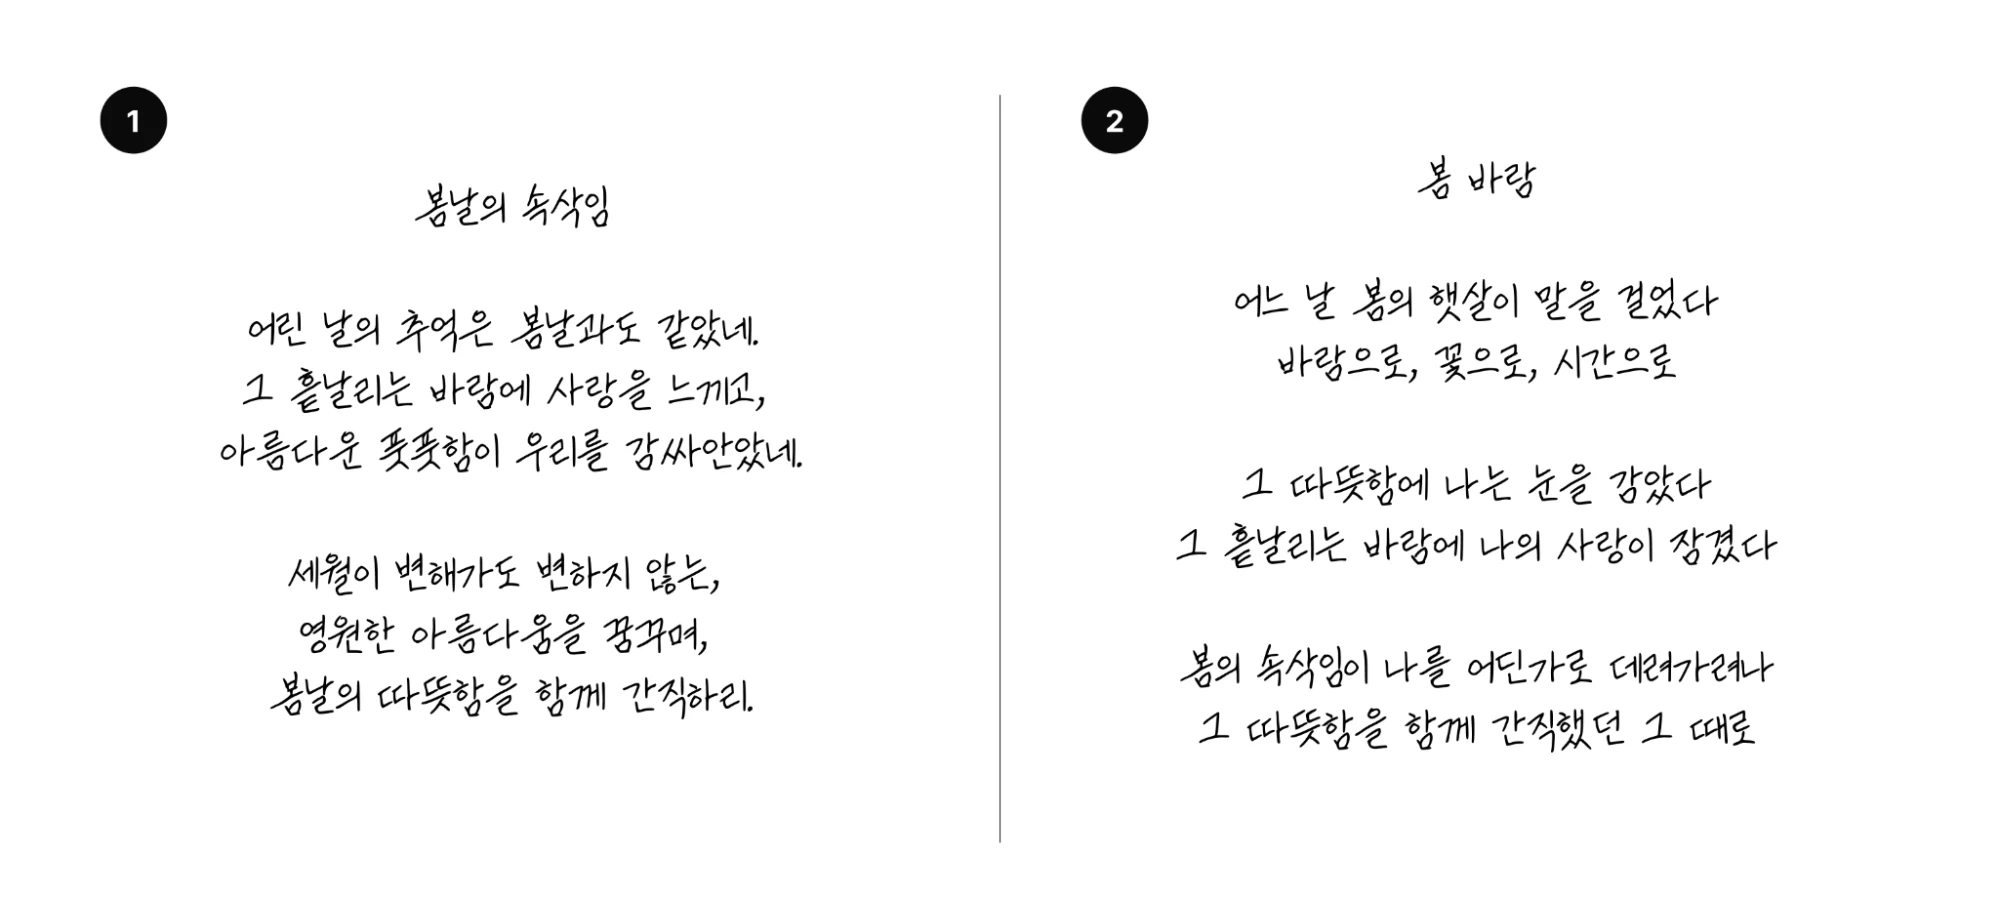 1
봄날의 속삭임
어린 날의 추억은 봄날과도 같았네.
그 흩날리는 바람에 사랑을 느끼고,
아름다운 풋풋함이 우리를 감싸안았네.
세월이 변해가도 변하지 않는,
영원한 아름다움을 꿈꾸며,
봄날의 따뜻함을 함께 간직하리.
2
봄 바람
어느 날 봄의 햇살이 말을 걸었다
바람으로, 꽃으로, 시간으로
그 따뜻함에 나는 눈을 감았다
그 흩날리는 바람에 나의 사랑이 잠겼다
봄의 속삭임이 나를 어딘가로 데려가려나
그 따뜻함을 함께 간직했던 그 때로